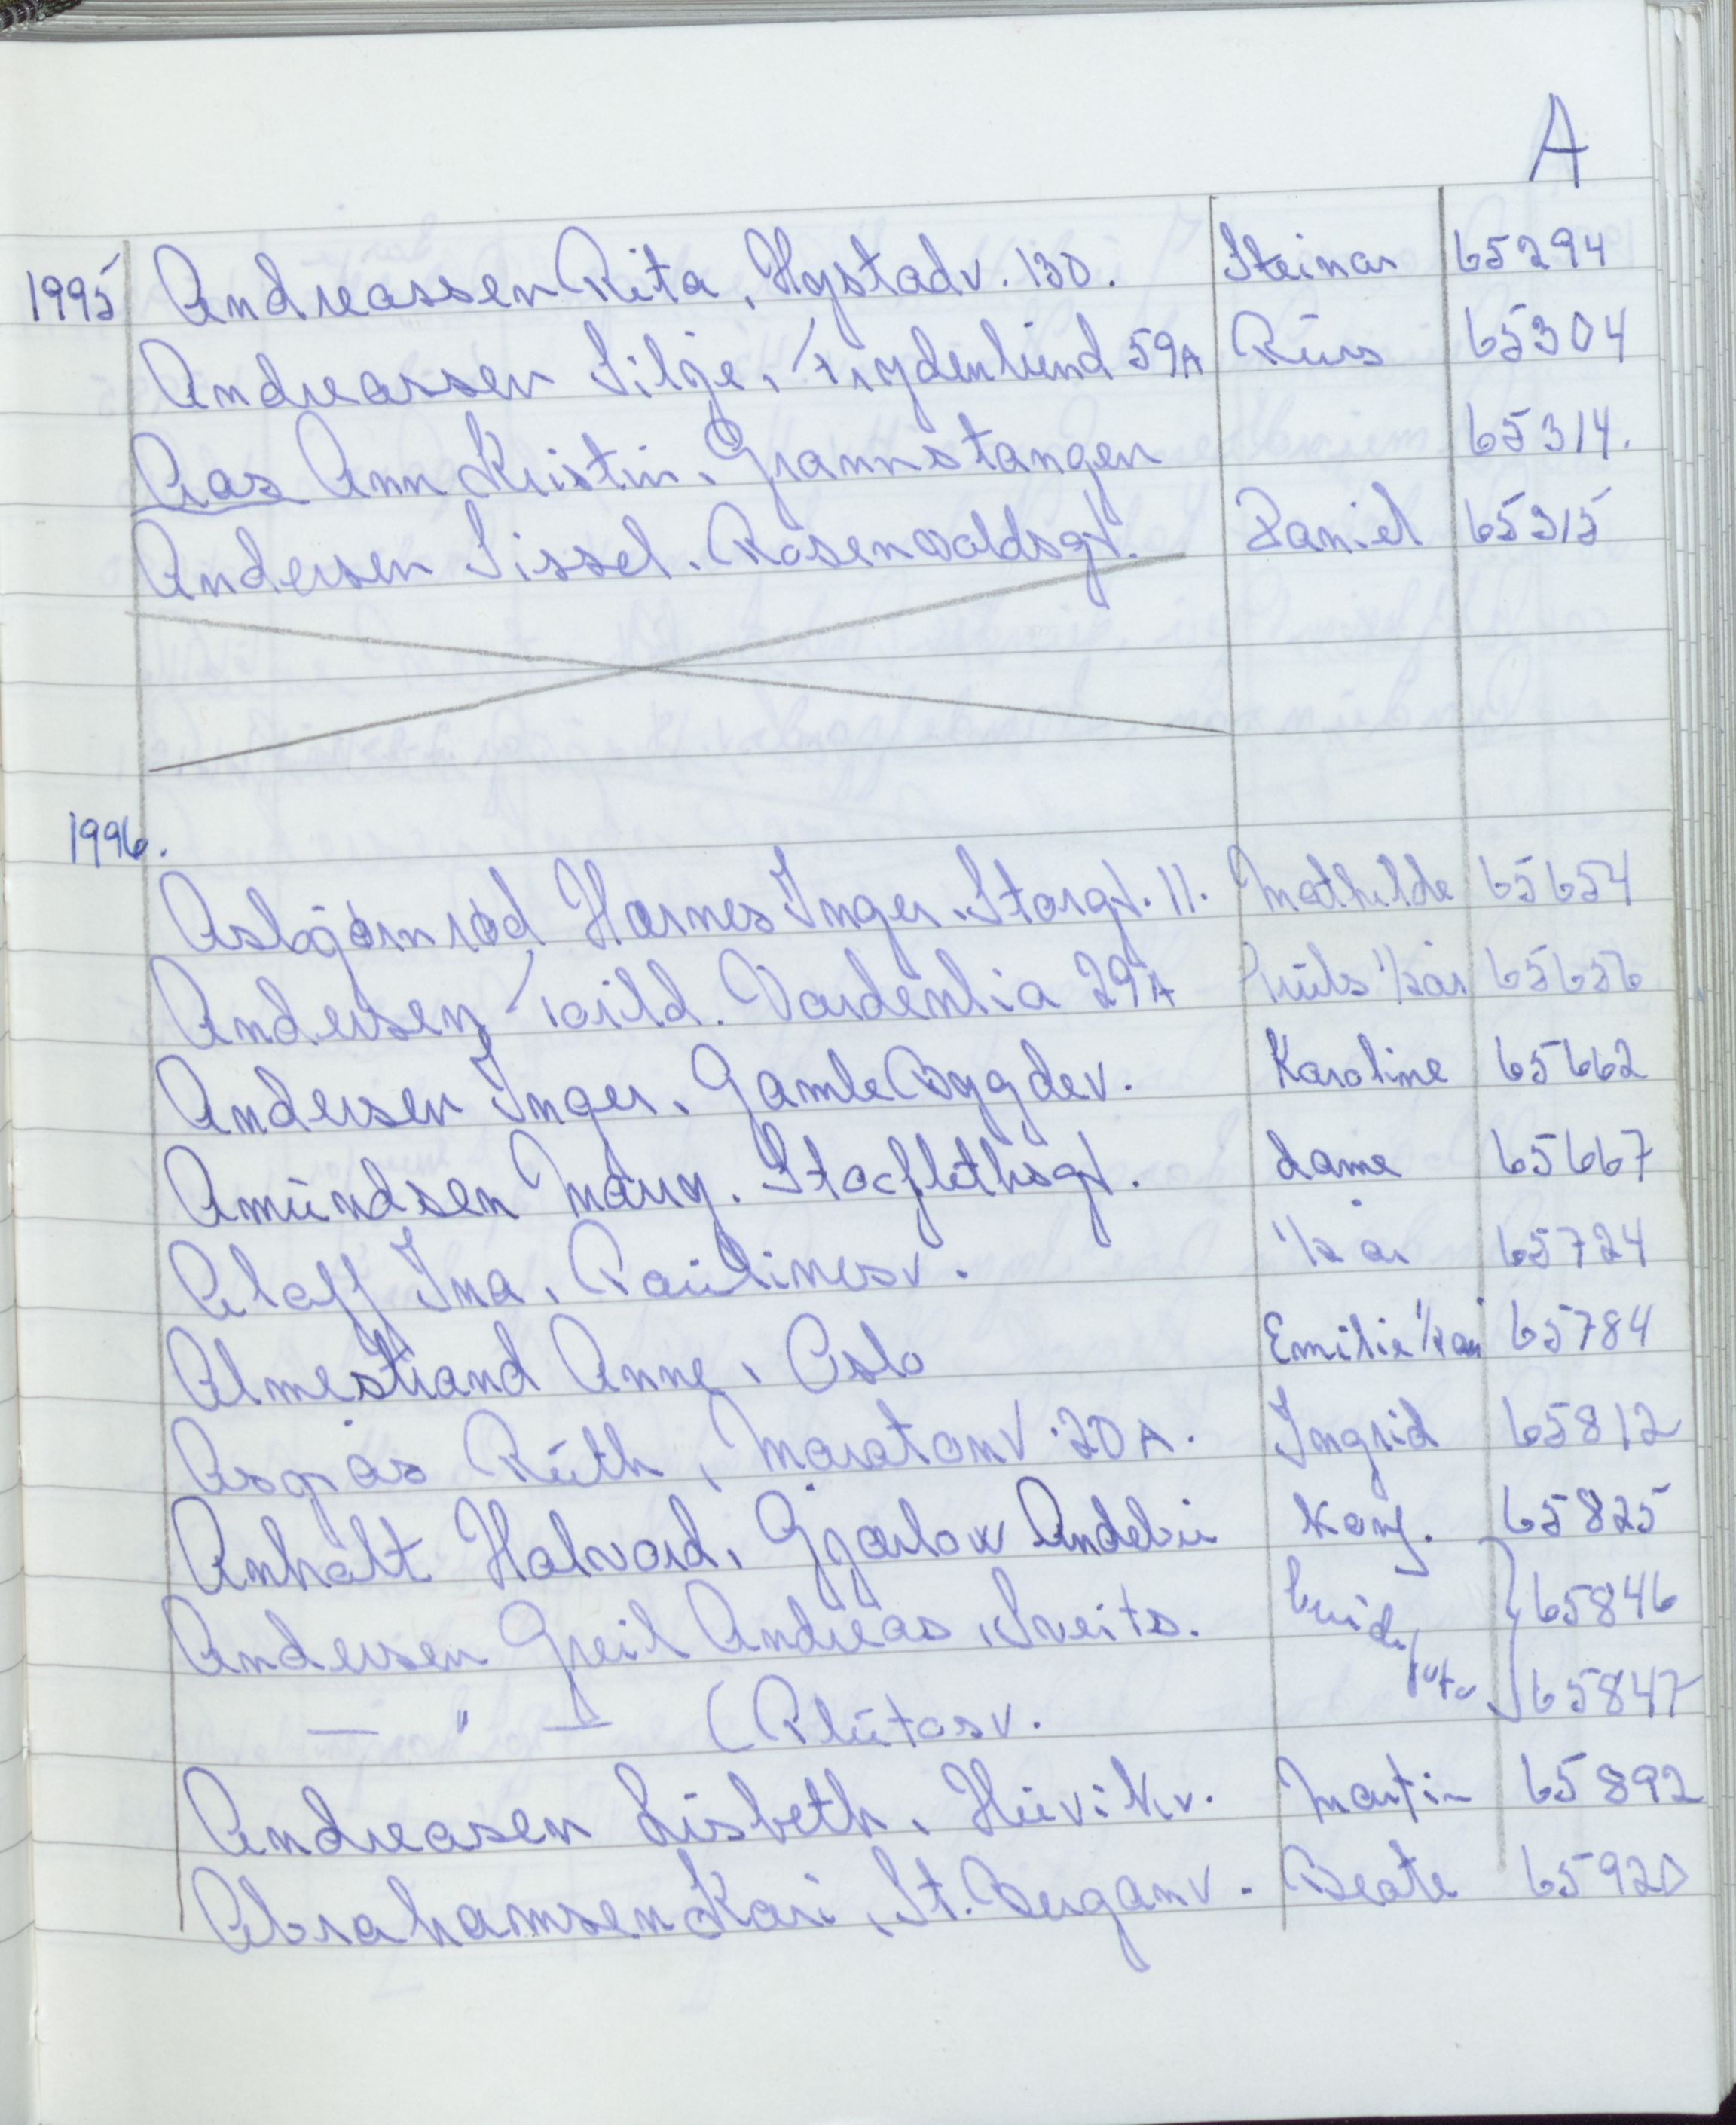 A
1995 Andreassen Rita, Hystadv. 130. Steinar 65294
Andreassen Silje, Frydenlund 59A Russ 65304
Aas Ann Kristin, Grannstangen 65314.
Andersen Sissel. Rosenvoldsgt. Daniel 65315
1996.
Asbjørnrød Harnes Inger. Storgt. 11. Mathilde 65654
Andersen Torild. Vardenlia 29A 1/2 år 65656
Andersen Inger, Gamle Bygdev. Karoline 65662
Amundsen Mary. Stockflethsgt. dame 65667
Aloff Ina, Paulinesv. 1/2 år 65724
Almestrand Anne, Oslo Emilie 1/2 år 65784
Asgås Ruth, Maratonv. 20A. Ingrid 65812
Anholt Halvard, Gjarlow Andebu Konf. 65825
Andersen Greil Andreas, Sveits. brudef 65846
— " — (Plutosv. 65847
Andreasen Lisbeth, Huvikv. Martin 65892
Abrahamsen Kari, St. Berganv. Beate 65920